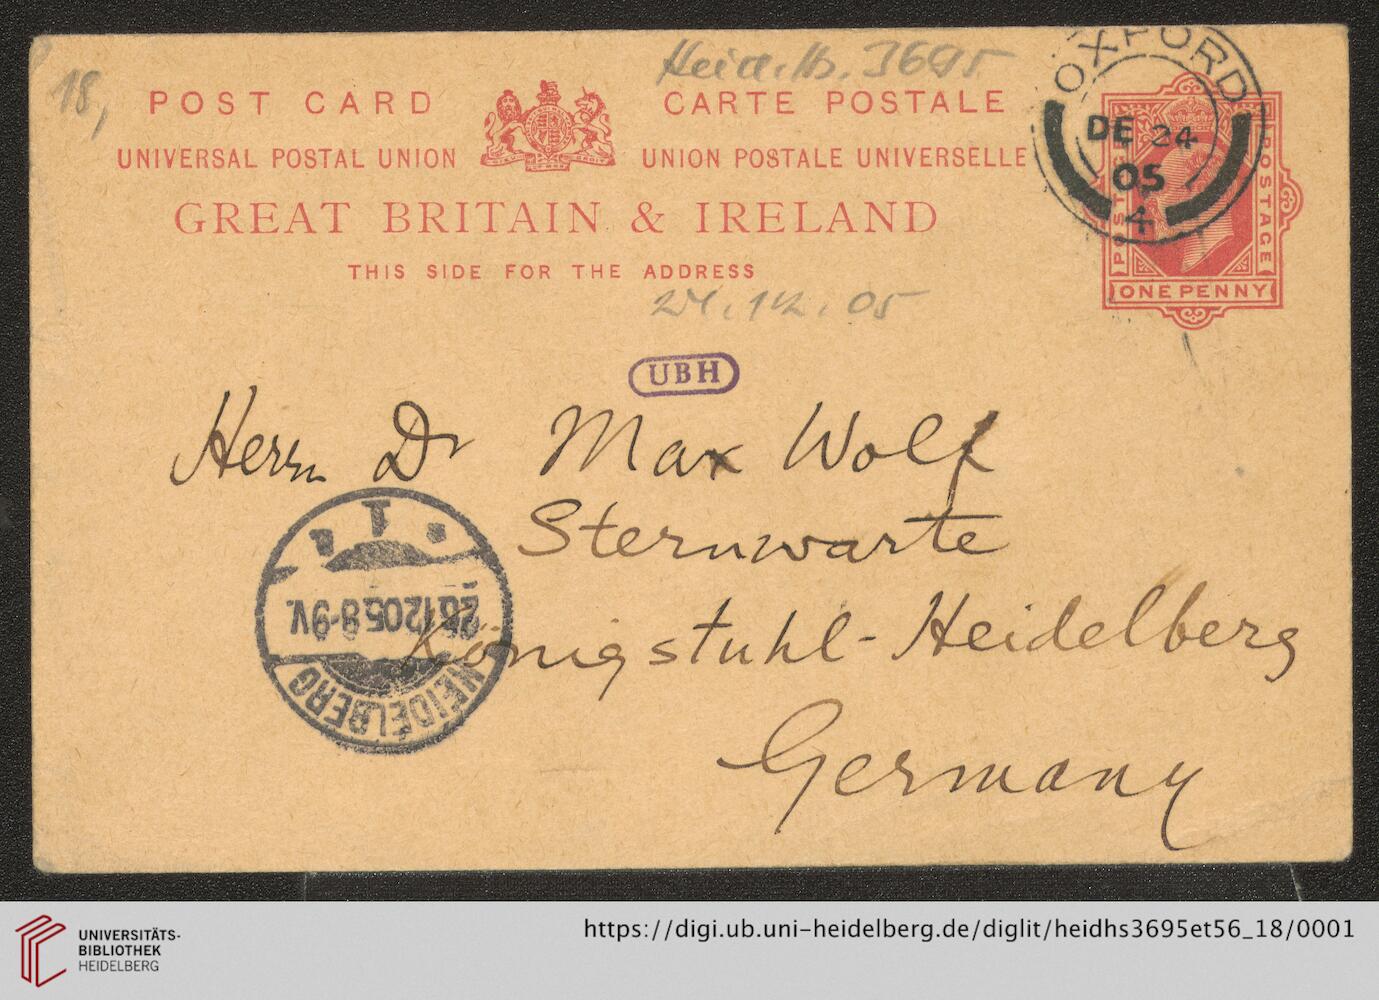 18,
Heid. Hs. 3695
POST CARD
CARTE POSTALE
UNIVERSAL POSTAL UNION
UNION POSTALE UNIVERSELLE
GREAT BRITAIN & IRELAND
THIS SIDE FOR THE ADDRESS
OXFORD
DE 24
05
4
POSTAGE
ONE PENNY
24.12.05
UBH
Herrn Dr Max Wolf
Sternwarte
Königstuhl-Heidelberg
Germany
HEIDELBERG
26.12.05.8-9V.
* 1 a
UNIVERSITÄTS-
BIBLIOTHEK
HEIDELBERG
https://digi.ub.uni-heidelberg.de/diglit/heidhs3695et56_18/0001